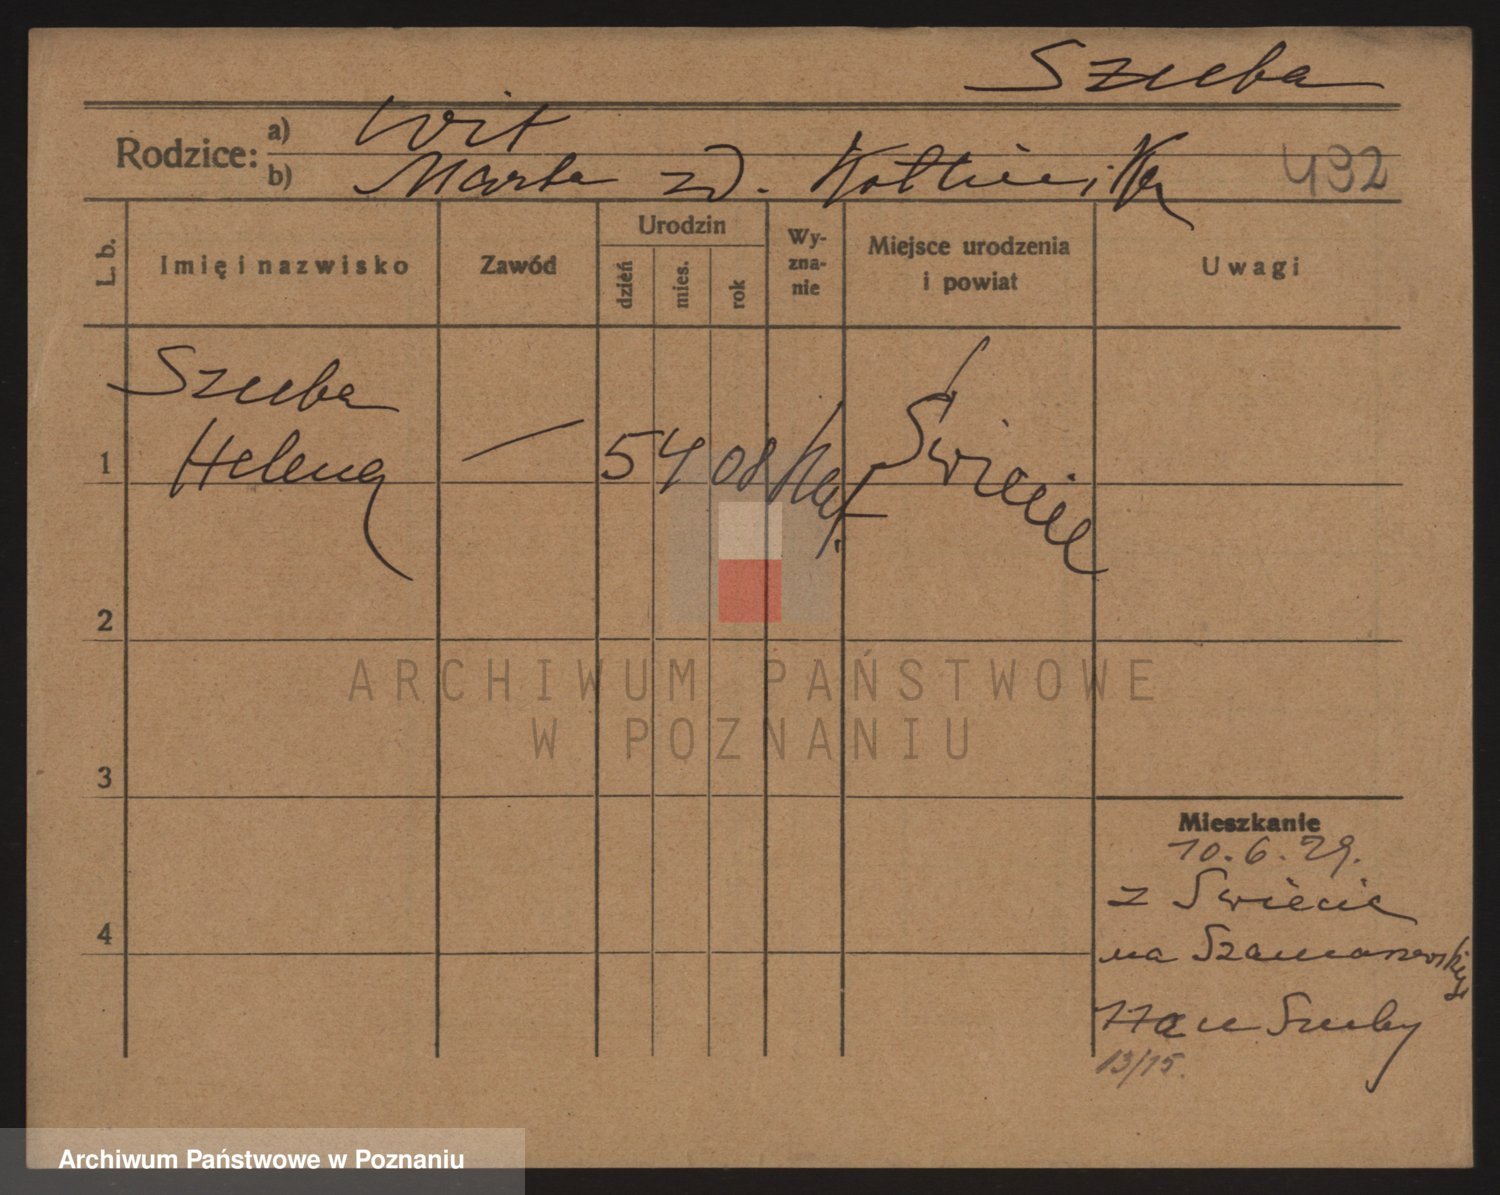 Szuba
Rodzice: a) Wit
b) Marta zd.
432
L. b.
Imię i nazwisko
Zawód
Urodzin
dzień
mies.
rok
Wy-
zna-
nie
Miejsce urodzenia
i powiat
Uwagi
Szuba
1 Helena — 5 4 08 kat. Świecie
2
3
4
Mieszkanie
10.6.29.
z Swiecie
na
u Szuby
13/15.
ARCHIWUM PAŃSTWOWE
W POZNANIU
Archiwum Państwowe w Poznaniu